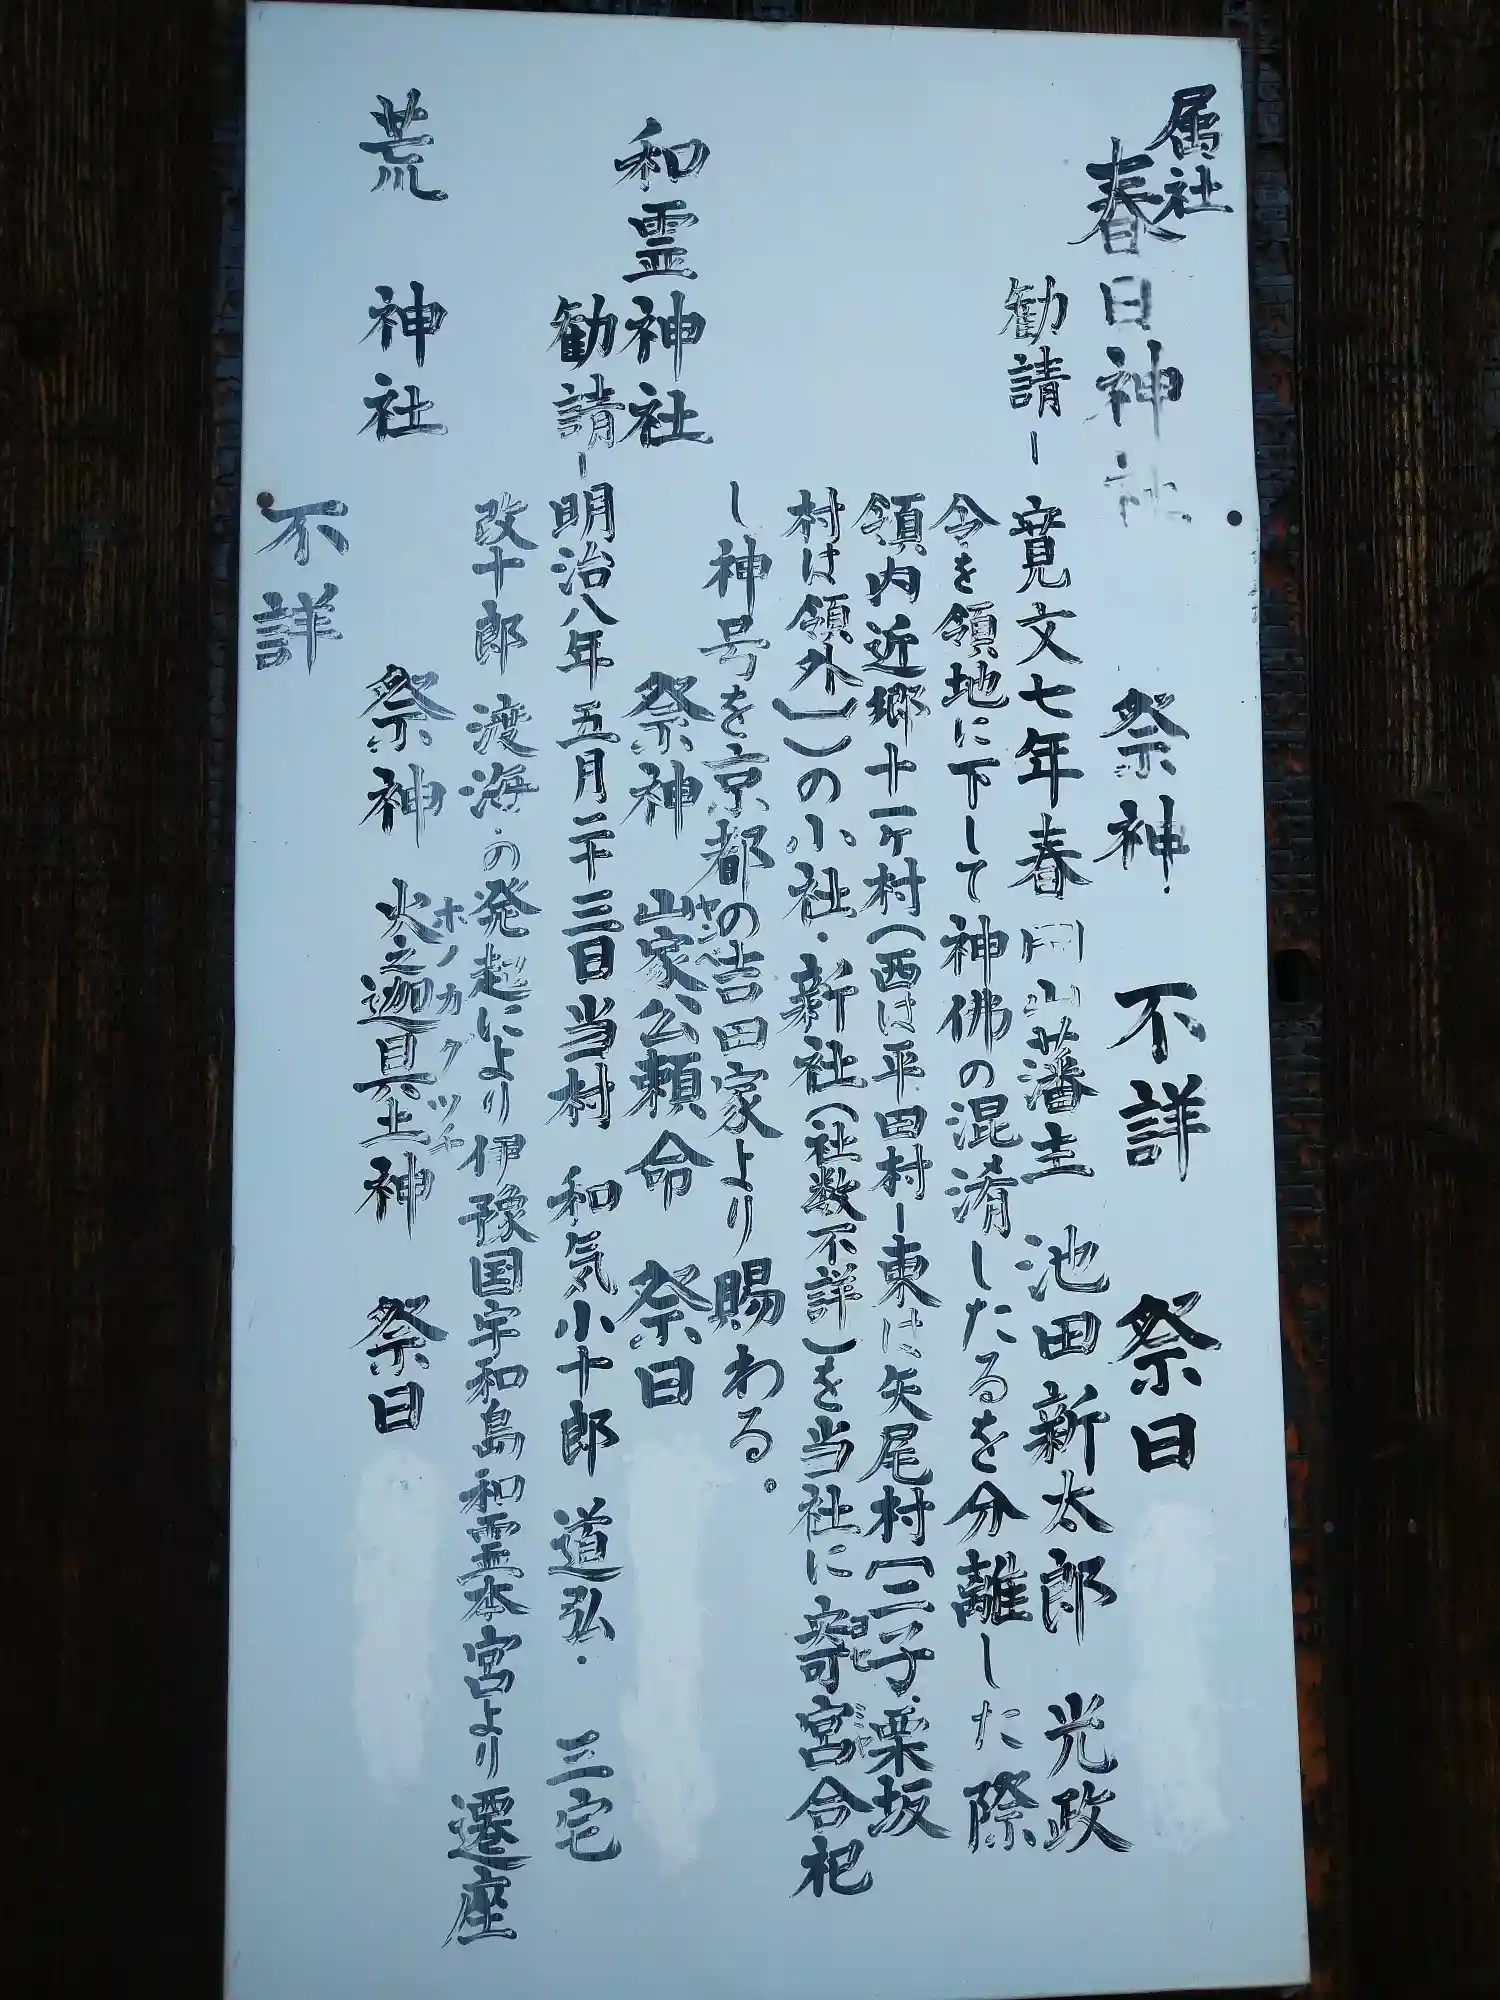 属社
春日神社 祭神 不詳 祭日
勧請ー寛文七年春 岡山藩主 池田新太郎 光政
令を領地に下して神佛の混淆したるを分離した際
領内近郷十一ヶ村(西は平田村ー東は矢尾村[二子・栗坂
村は領外])の小社・新社(社数不詳)を当社に寄宮合祀
し神号を京都の吉田家より賜わる。
和霊神社 祭神 山家公頼命 祭日
勧請ー明治八年五月二十三日当村 和気小十郎 道弘・三宅
改十郎 渡海の発起により伊豫国宇和島和霊本宮より遷座
荒神社 祭神 火之迦具土神 祭日
ホノカグツチ
不詳